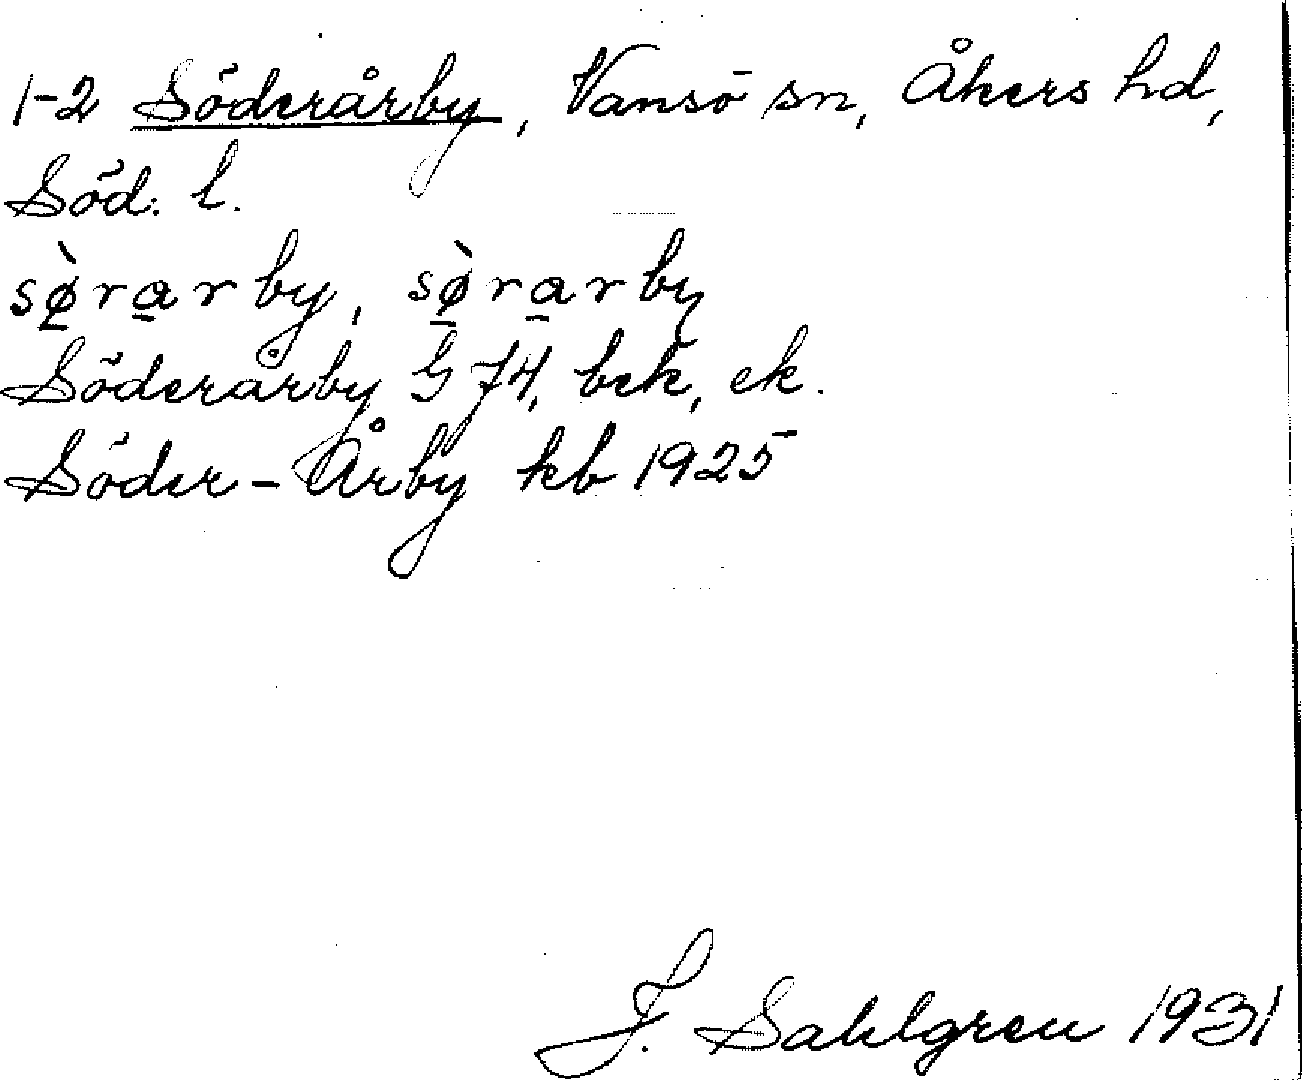 1-2 Söderårby, Vansö sn, Åkers hd,
Söd. l.
sø̱̀ra̱rby, sø̱̀ra̱rby
Söderårby G 74, bek, ek.
Söder-Årby kb 1925
J. Sahlgren 1931